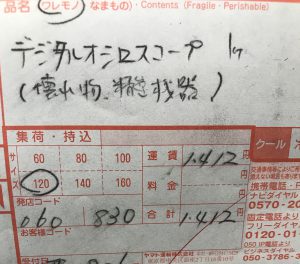 品名 ワレモノ なまもの)・Contents (Fragile・Perishable)
デジタルオシロスコープ 1ケ
(壊れ物、精密機器)
集荷・持込
サイズ
60 80 100
120 140 160
運賃 1,412円
料金 円
発店コード
060 830
合計 1,412円
お客様コード
クール
携帯電話・
ナビダイヤル
0570-20
固定電話・
フリーダイヤル
0120-01
050,IP電話
050-3786-3
ヤマト運輸株式会社